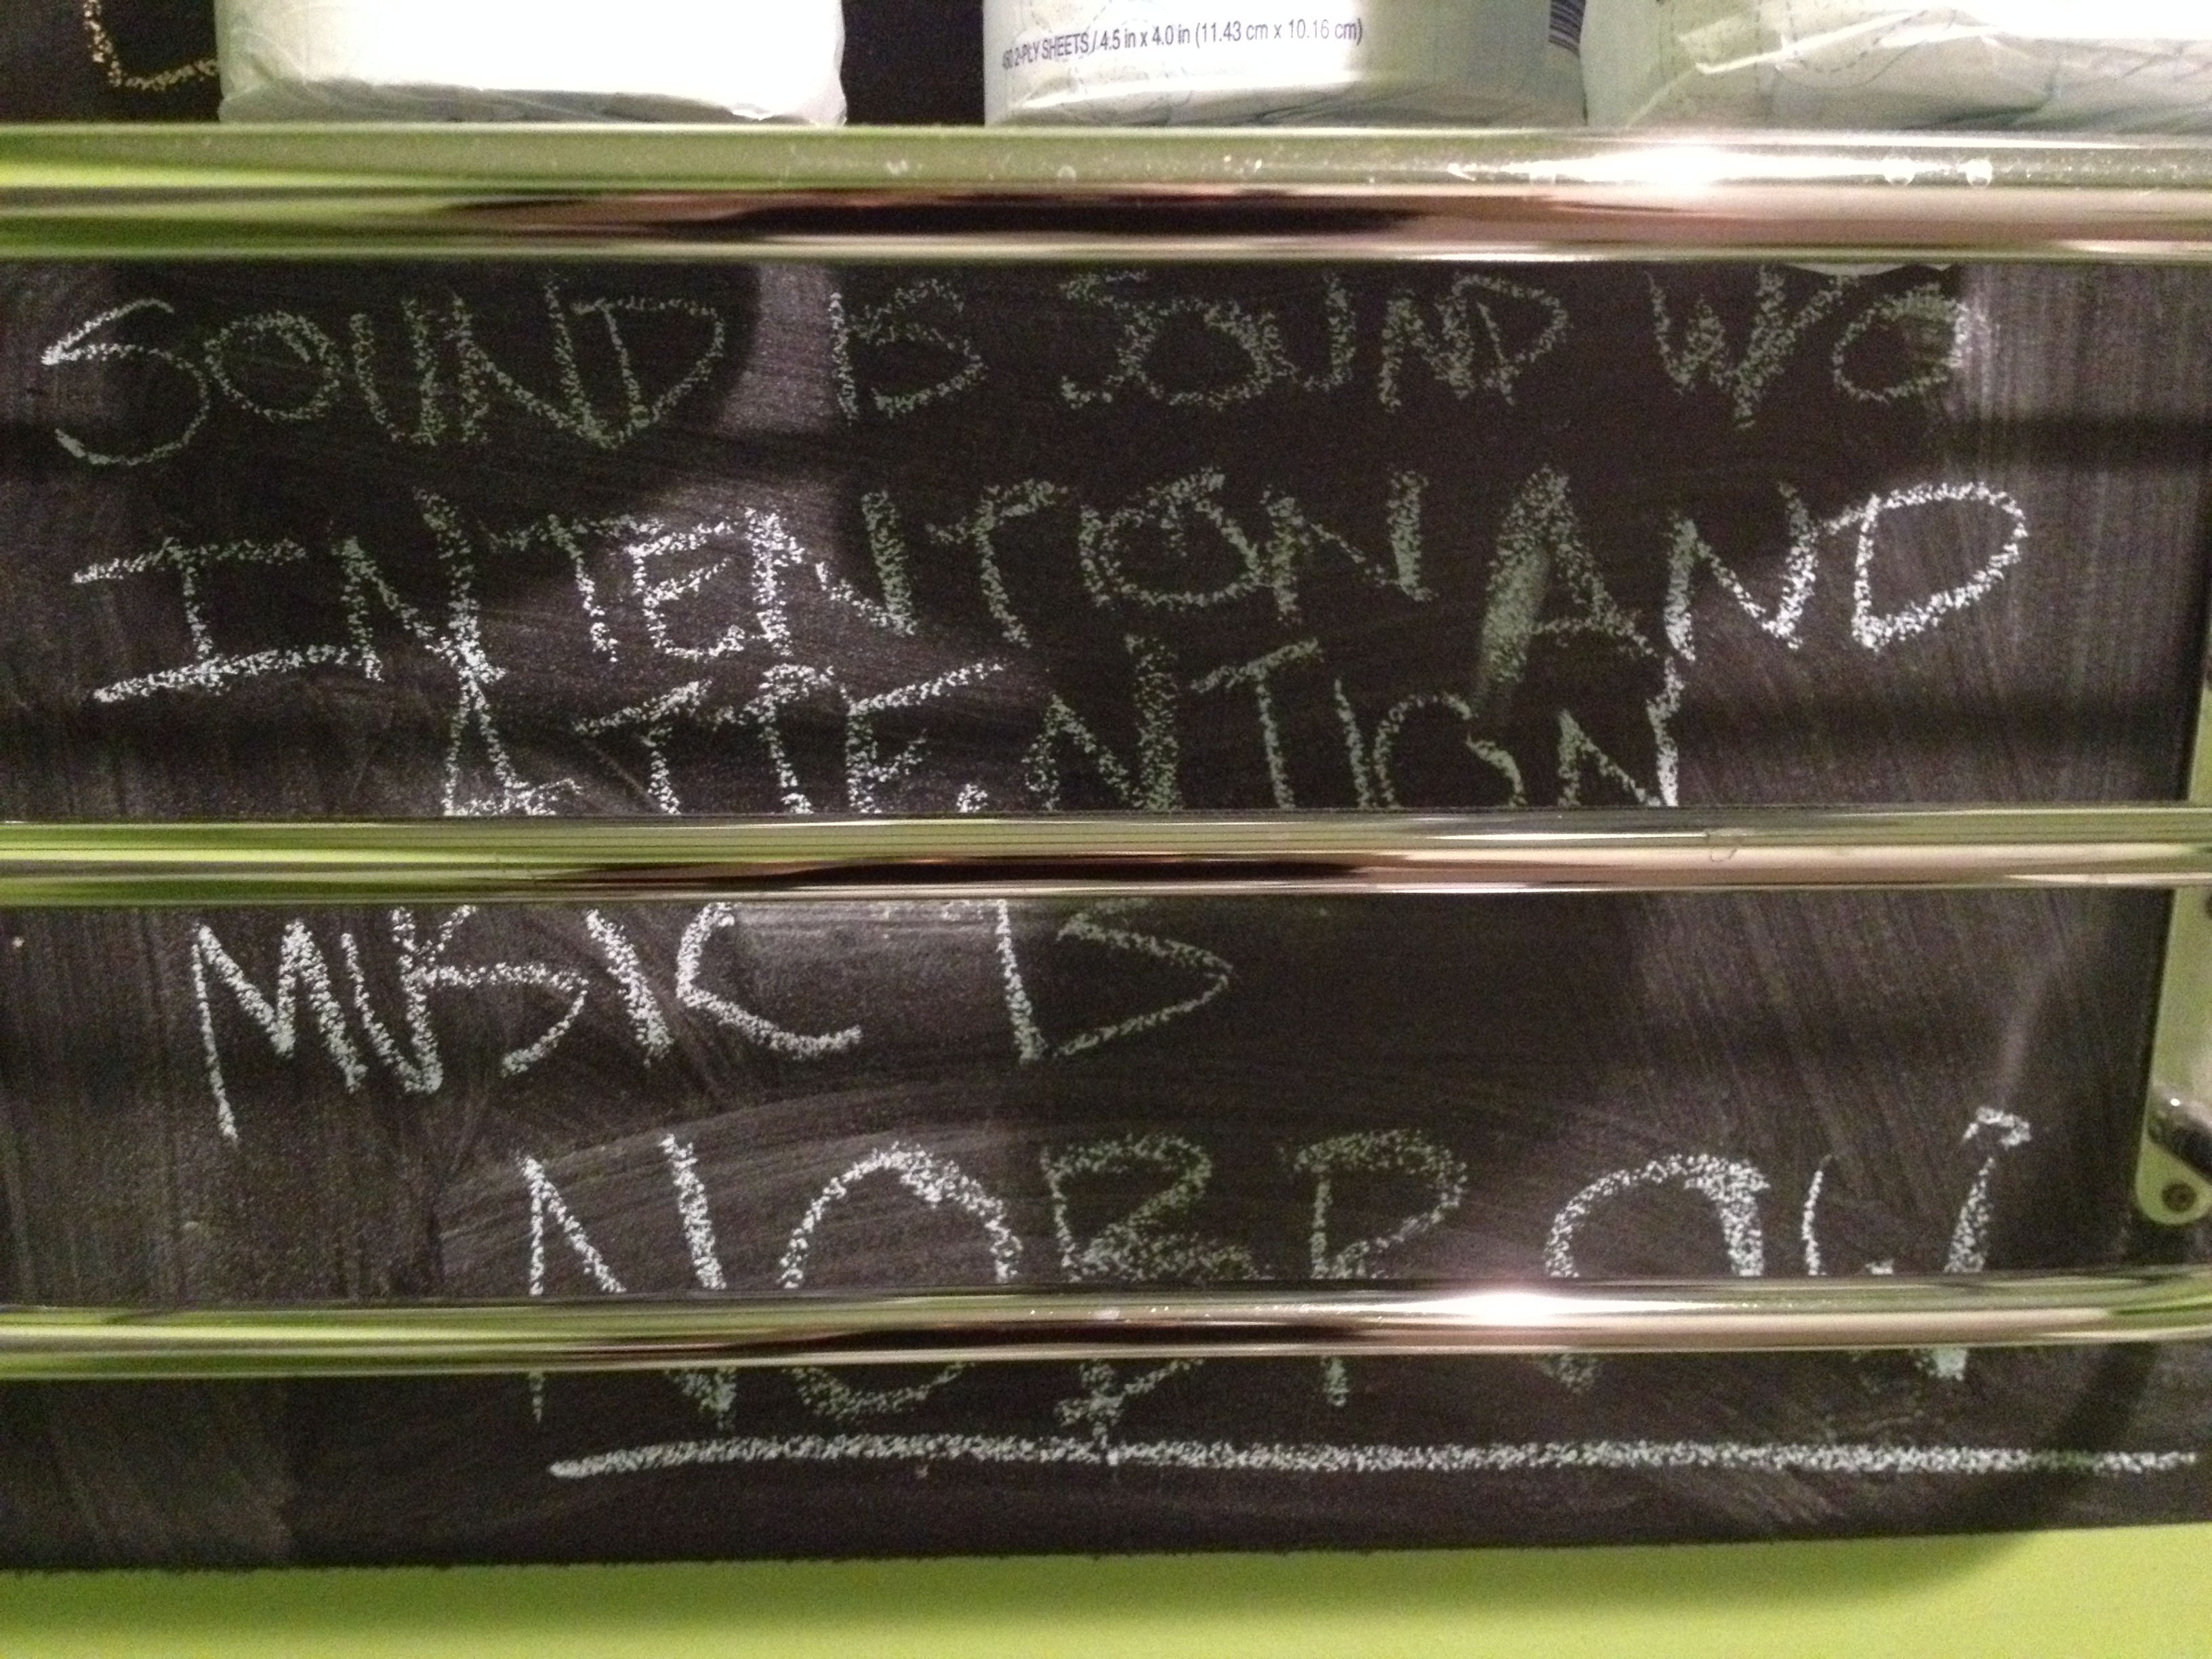 450 2-PLY SHEETS / 4.5 in x 4.0 in (11.43 cm x 10.16 cm)
SOUND IS SOUND WO
INTENTION AND
ATTENTION
MUSIC IS